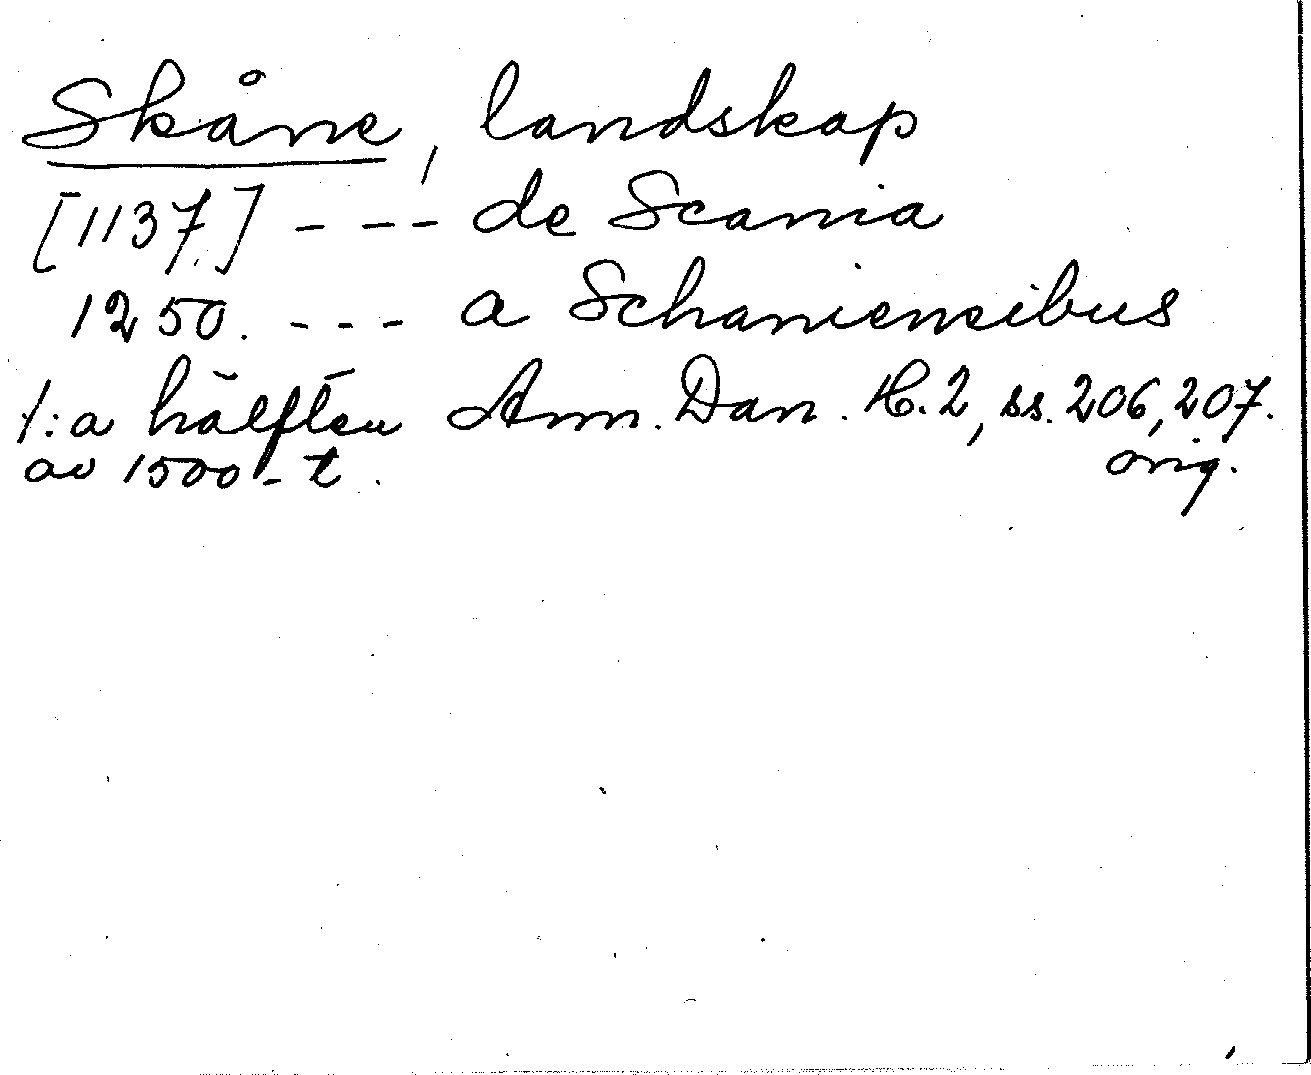 Skåne, landskap
[1137] - - - de Scania
1250. - - - a Schaniensibus
1:a hälften Ann. Dan. H. 2, ss. 206, 207.
av 1500-t. orig.